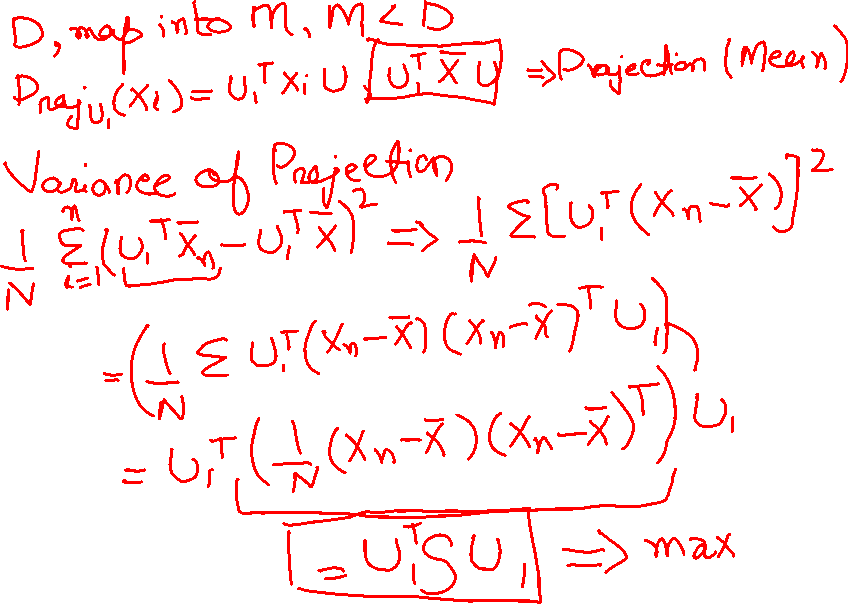 D, map into M, M < D
Proj_{U_1}(X_i) = U_1^T X_i U U_1^T X̄ U ⇒ Projection (Mean)
Variance of Projection
1/N Σ_{i=1}^{n} (U_1^T X̄_n - U_1^T X̄)^2 => 1/N Σ[U_1^T (X_n - X̄)]^2
= (1/N Σ U_1^T (X_n - X̄) (X_n - X̄)^T U_1)
= U_1^T (1/N (X_n - X̄) (X_n - X̄)^T) U_1
= U_1^T S U_1 => max